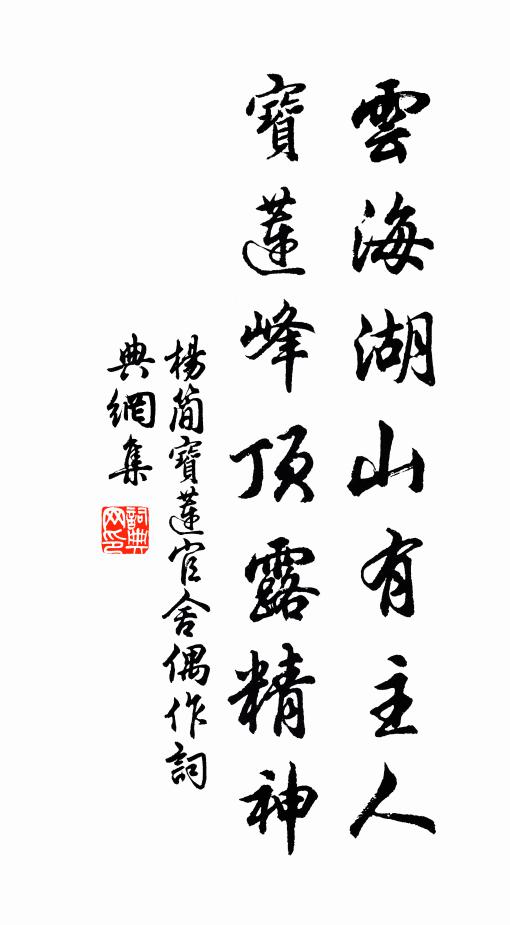 雲海湖山有主人
寶蓮峰頂露精神
楊簡寶蓮官舍偶作詞
典網集
詞典網印